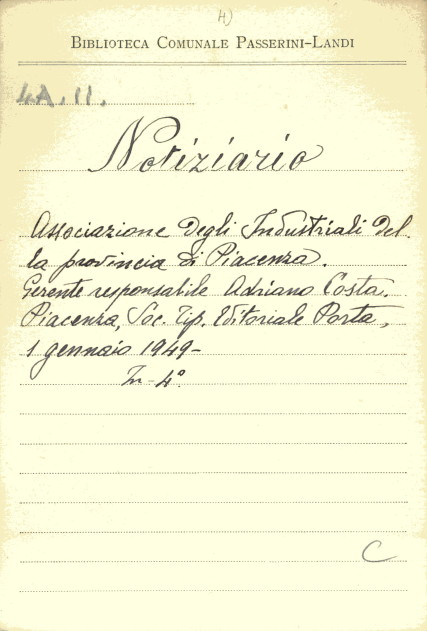 4)
BIBLIOTECA COMUNALE PASSERINI-LANDI
4A. II.
Notiziario
Associazione degli Industriali del-
la provincia di Piacenza.
Gerente responsabile Adriano Costa.
Piacenza, Soc. Tip. Editoriale Porta,
1 gennaio 1949-
In-4°.
C